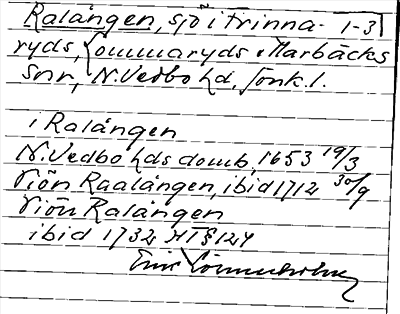 Ralången, sjö i Frinna- 1-3
ryds, Sommaryds o. Marbäcks
snr, N. Vedbo hd, Jönk. l.
i Ralången
N. Vedbo hds domb, 1653 19/3
Siön Raalången, ibid 1712 30/9
Siön Ralången
ibid 1732 HT § 124